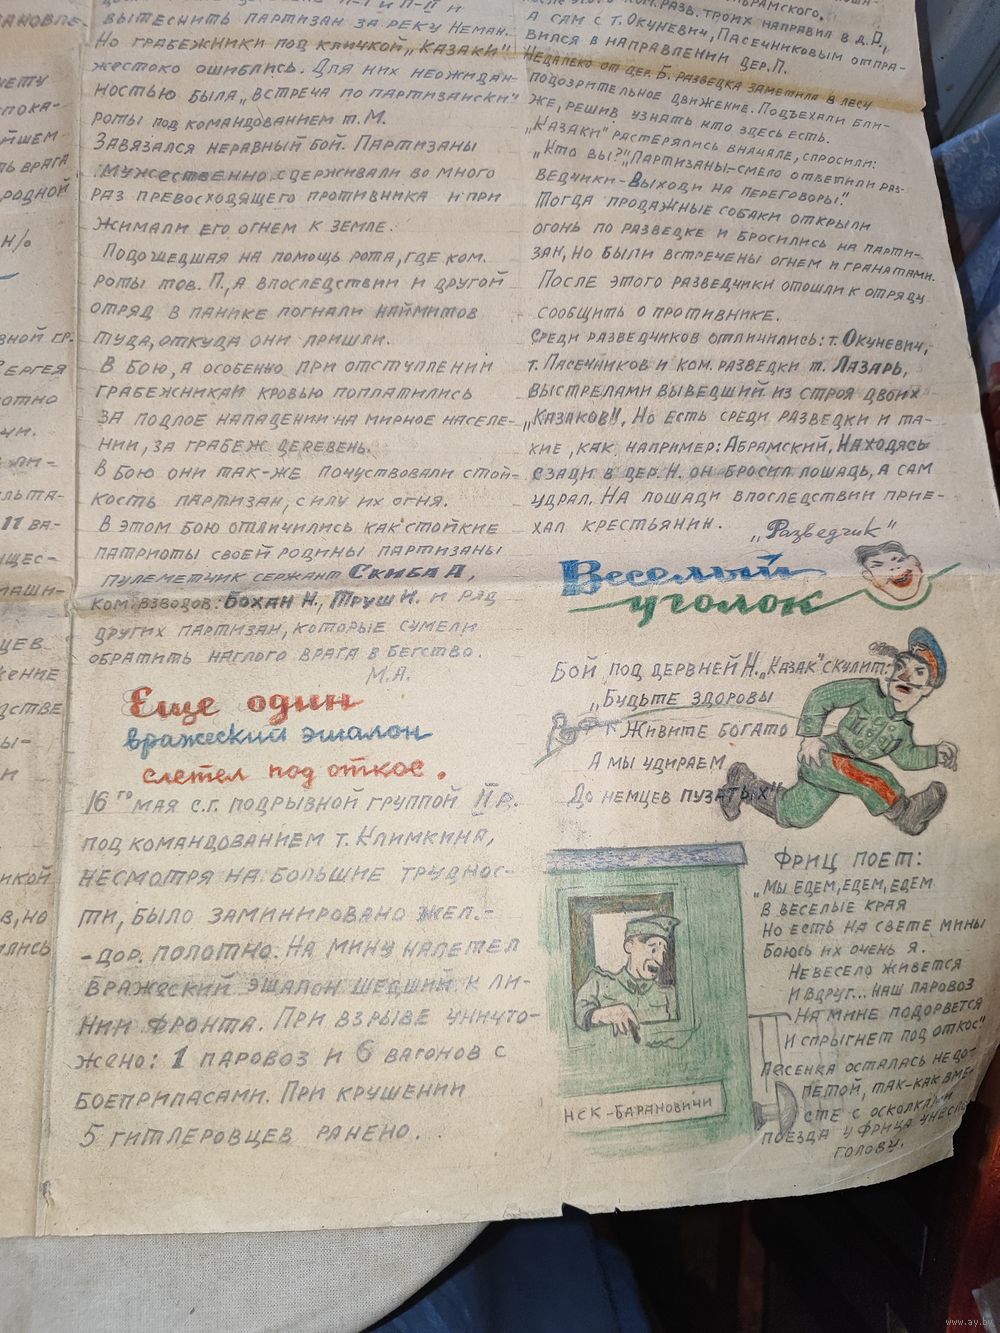 вытеснить партизан за реку Неман.
Но грабежники под кличкой „казаки"
жестоко ошиблись. Для них неожидан-
ностью была „встреча по партизански"
роты под командованием т.М.
Завязался неравный бой. Партизаны
мужественно сдерживали во много
раз превосходящего противника и при
жимали его огнем к земле.
Подошедшая на помощь рота, где ком.
роты тов. П., а впоследствии и другой
отряд в панике погнали наймитов
туда, откуда они пришли.
В бою, а особенно при отступлении
грабежникаи кровью поплатились
за подлое нападении на мирное населе-
нии, за грабеж деревень.
В бою они так-же почуствовали стой-
кость партизан, силу их огня.
В этом бою отличились как стойкие
патриоты своей родины партизаны
пулеметчик сержант Скиба А,
ком. взводов: Бохан Н., Труш И. и ряд
других партизан, которые сумели
обратить наглого врага в бегство.
М.А.
Еще один
вражеский эшалон
слетел под откос.
16го мая с.г. подрывной группой II р.
под командованием т. Климкина,
несмотря на большие труднос-
ти, было заминировано жел.-
-дор. полотно. На мину налетел
вражеский эшалон шедший к ли-
нии фронта. При взрыве уничто-
жено: 1 паровоз и 6 вагонов с
боеприпасами. При крушении
5 гитлеровцев ранено.
А сам с т. Окуневич, Пасечниковым отпра-
вился в направлении дер. П.
Недалеко от дер. Б. разведка заметила в лесу
подозрительное движение. Подъехали бли-
же, решив узнать кто здесь есть.
„Казаки" растерялись вначале, спросили:
„Кто вы?" „Партизаны-смело ответили раз-
ведчики-Выходи на переговоры".
Тогда продажные собаки открыли
огонь по разведке и бросились на парти-
зан, но были встречены огнем и гранатами.
После этого разведчики отошли к отряду
сообщить о противнике.
Среди разведчиков отличились: т. Окуневич,
т. Пасечников и ком. разведки т. Лазарь,
выстрелами выведший из строя двоих
„Казаков". Но есть среди разведки и та-
кие, как например: Абрамский. Находясь
сзади в дер. Н. он бросил лошадь, а сам
удрал. На лошади впоследствии прие-
хал крестьянин.
„Разведчик"
Веселый
уголок
Бой под дервней Н. „Казак" скулит:
„Будьте здоровы
Живите богато
А мы удираем
До немцев пузатых"
Фриц поет:
„Мы едем, едем, едем
В веселые края
Но есть на свете мины
Боюсь их очень я.
Невесело живется
И вдруг... наш паровоз
На мине подорвется
И спрыгнет под откос"
Песенка осталась недо-
петой, так-как вме-
сте с осколками
поезда у Фрица унесло
голову.
нск-Барановичи
www.ay.by